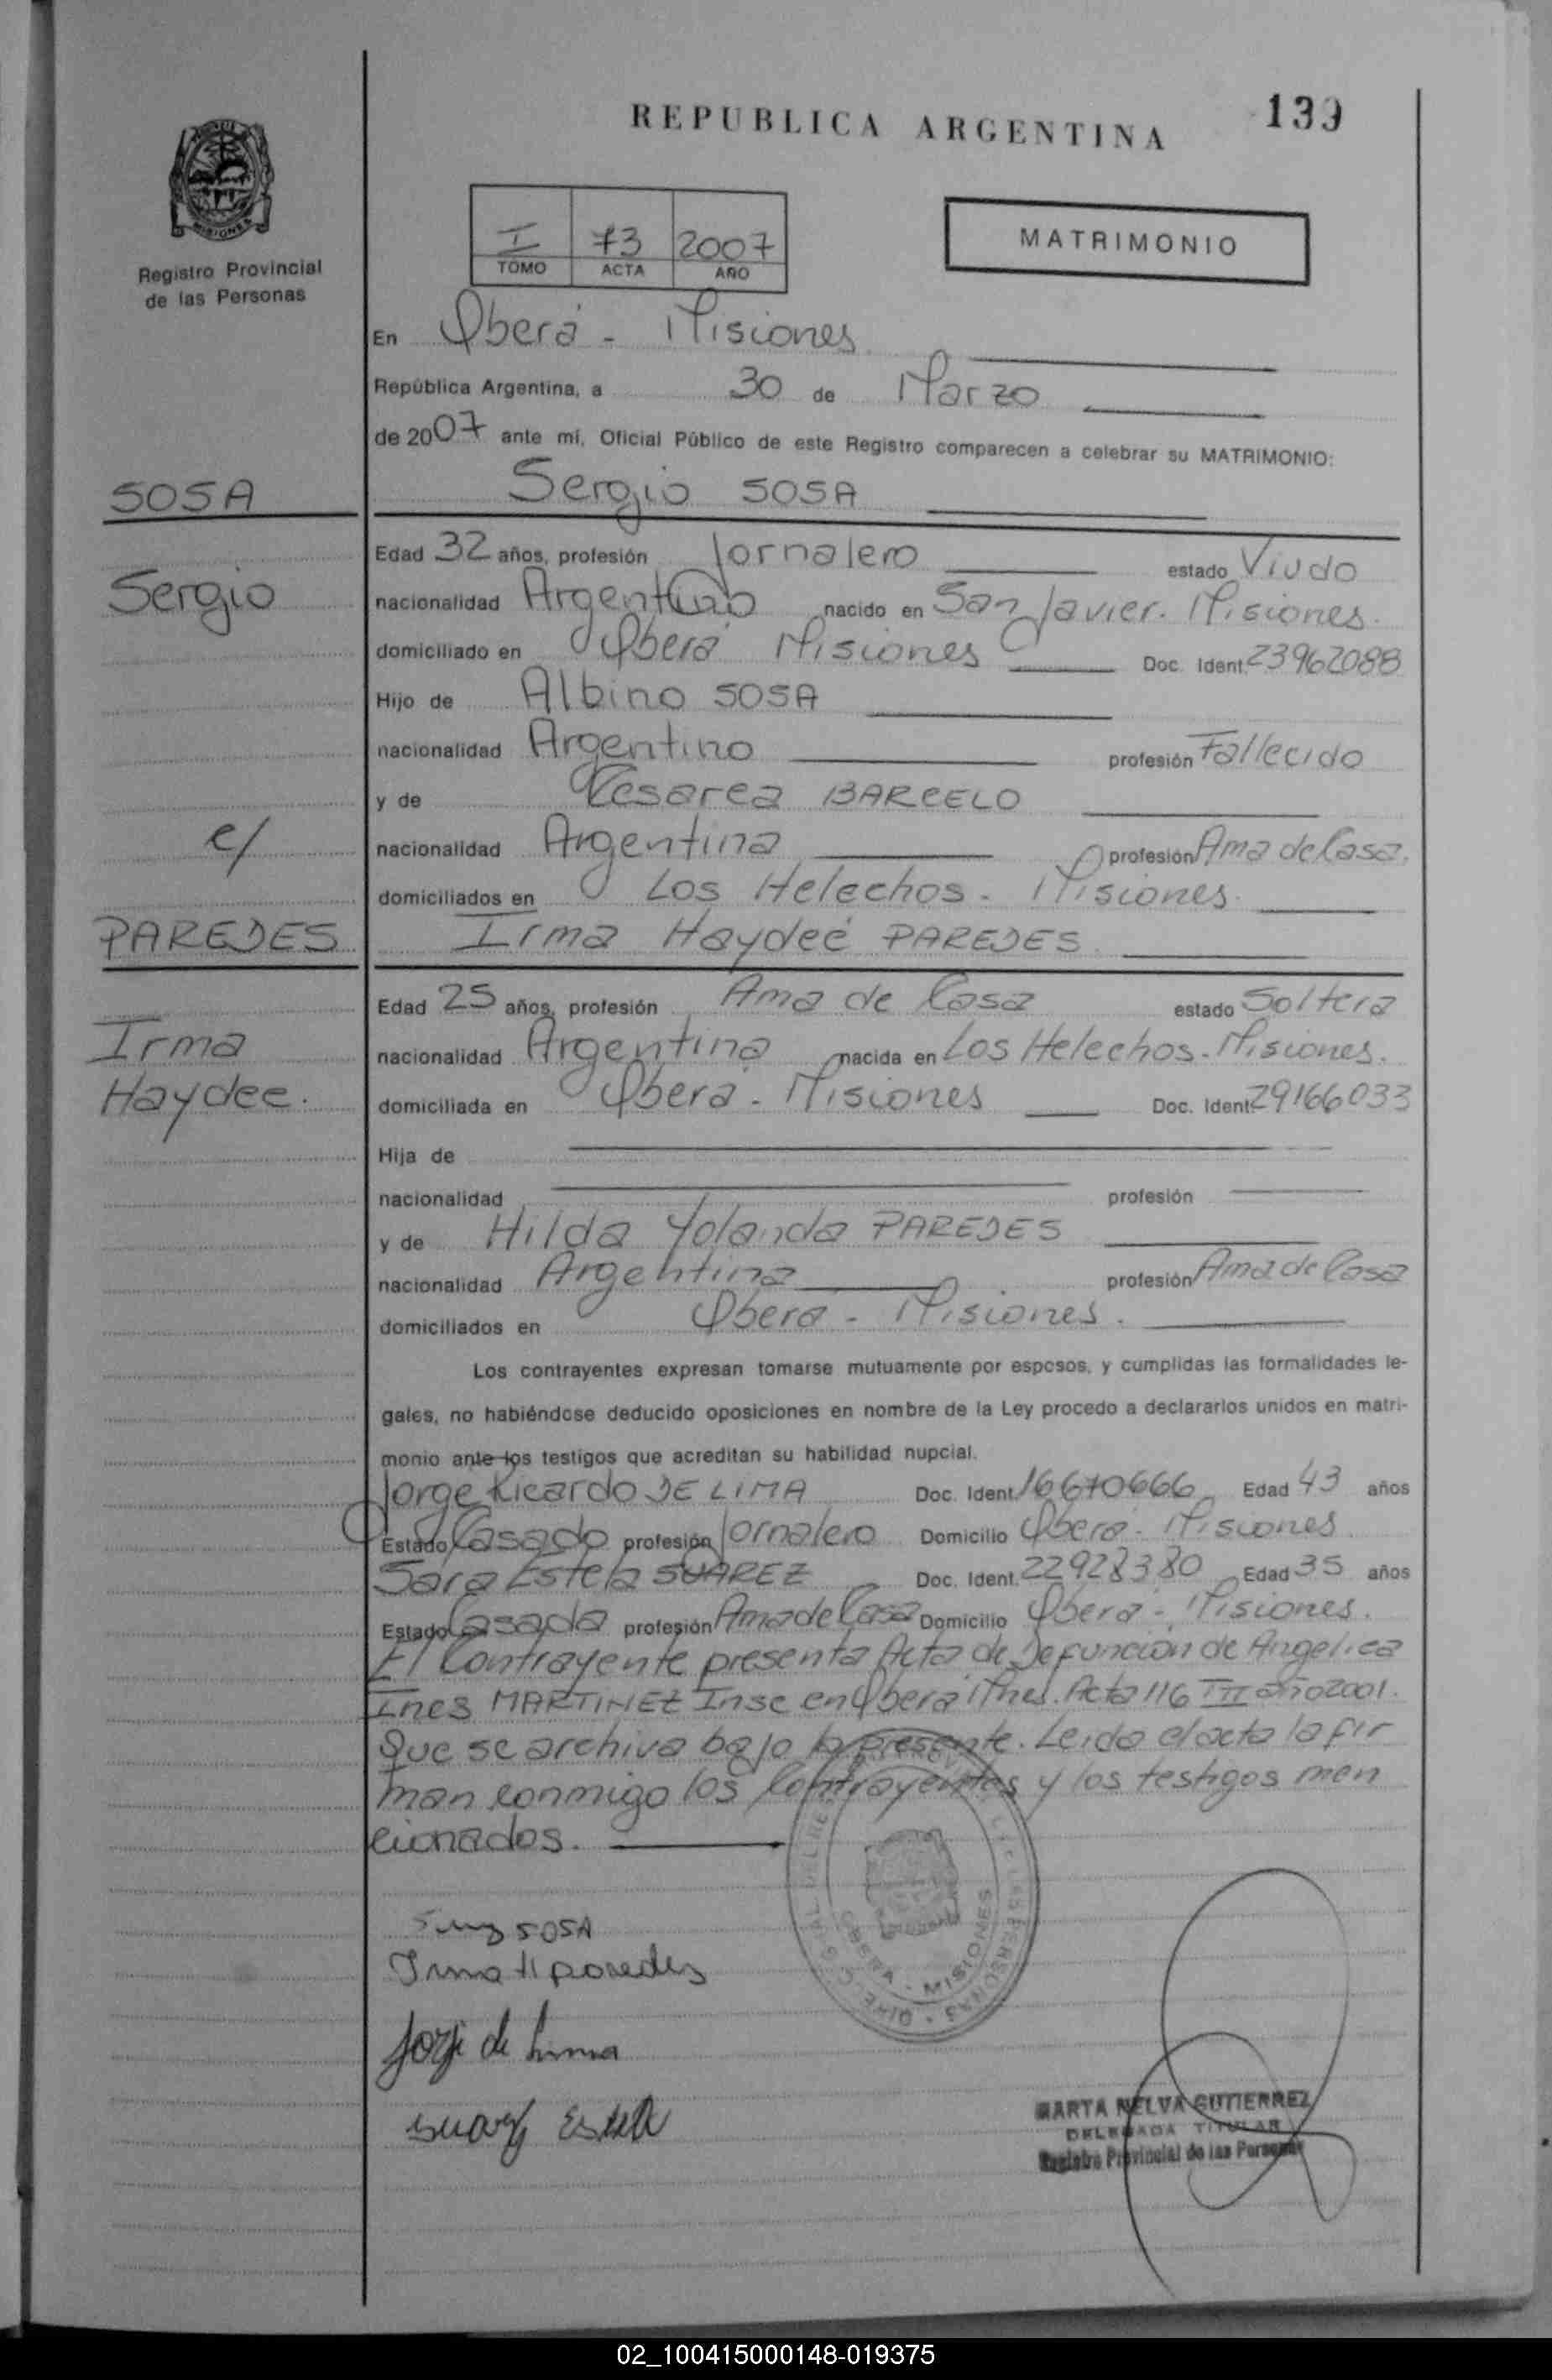 REPUBLICA ARGENTINA
139
MISIONES
Registro Provincial
de las Personas
I 73 2007
TOMO ACTA AÑO
MATRIMONIO
En Oberá - Misiones
República Argentina, a 30 de Marzo
de 2007 ante mí, Oficial Público de este Registro comparecen a celebrar su MATRIMONIO:
SOSA
Sergio SOSA
Edad 32 años, profesión Jornalero estado Viudo
Sergio
nacionalidad Argentino nacido en San Javier. Misiones.
domiciliado en Oberá Misiones Doc. Ident. 23962088
Hijo de Albino SOSA
nacionalidad Argentino profesión Fallecido
y de Cesarea BARCELO
c/
nacionalidad Argentina profesión Ama de Casa.
domiciliados en Los Helechos - Misiones.
PAREDES
Irma Haydeé PAREDES.
Edad 25 años, profesión Ama de Casa estado Soltera
Irma
nacionalidad Argentina nacida en Los Helechos - Misiones.
Haydee.
domiciliada en Oberá - Misiones Doc. Ident. 29166033
Hija de
nacionalidad profesión
y de Hilda Yolanda PAREDES
nacionalidad Argentina profesión Ama de Casa
domiciliados en Oberá - Misiones.
Los contrayentes expresan tomarse mutuamente por esposos, y cumplidas las formalidades le-
gales, no habiéndose deducido oposiciones en nombre de la Ley procedo a declararlos unidos en matri-
monio ante los testigos que acreditan su habilidad nupcial.
Jorge Ricardo DE LIMA Doc. Ident. 16670666 Edad 43 años
Estado Casado profesión Jornalero Domicilio Oberá - Misiones
Sara Estela SUAREZ Doc. Ident. 22928380 Edad 35 años
Estado Casada profesión Ama de Casa Domicilio Oberá - Misiones.
El Contrayente presenta Acta de Defunción de Angelica
Ines MARTINEZ Insc en Oberá Mnes. Acta 116 III año 2001.
Que se archiva bajo la presente. Leida el acta la fir
man conmigo los Contrayentes y los testigos men
cionados.
OBERA - MISIONES
SOSA
Irma H paredes
Jorge de Lima
suarez Estela
MARTA NELVA GUTIERREZ
DELEGADA TITULAR
Registro Provincial de las Personas
02_100415000148-019375